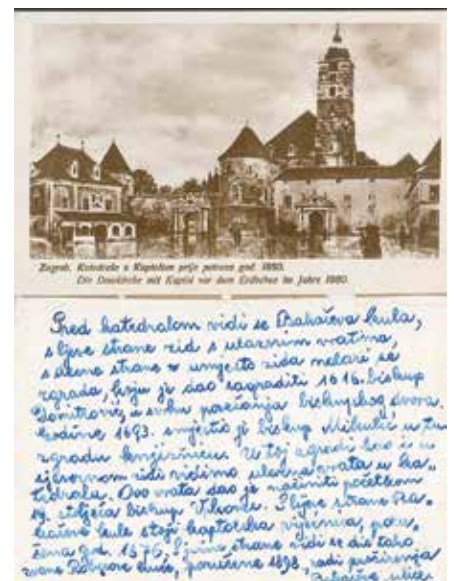 Zagreb. Katedrala s Kaptolom prije potresa god. 1880.
Die Domkirche mit Kaptol vor dem Erdbeben im Jahre 1880.
Pred katedralom vidi se Bakačeva kula,
s lijeve strane zid s ulaznim vratima,
s desne strane umjesto zida nalazi se
zgrada, koju je dao sagraditi 1616. biskup
Domitrović, u svrhu povećanja biskupskog dvora.
Godine 1693. smjestio je biskup Mikulić u tu
zgradu knjižnicu. U toj zgradi kao i u
sjevernom zidu vidimo ulazna vrata u ka-
tedralu. Ovo vrata dao je načiniti početkom
19. stoljeća biskup Vrhovac. S lijeve strane Ba-
kačeve kule stoji kaptolska vijećnica, poru-
šena god. 1876. strane vidi se dio tako
zvane kuće, porušene 1898, radi proširenja
Bakačeve ulice